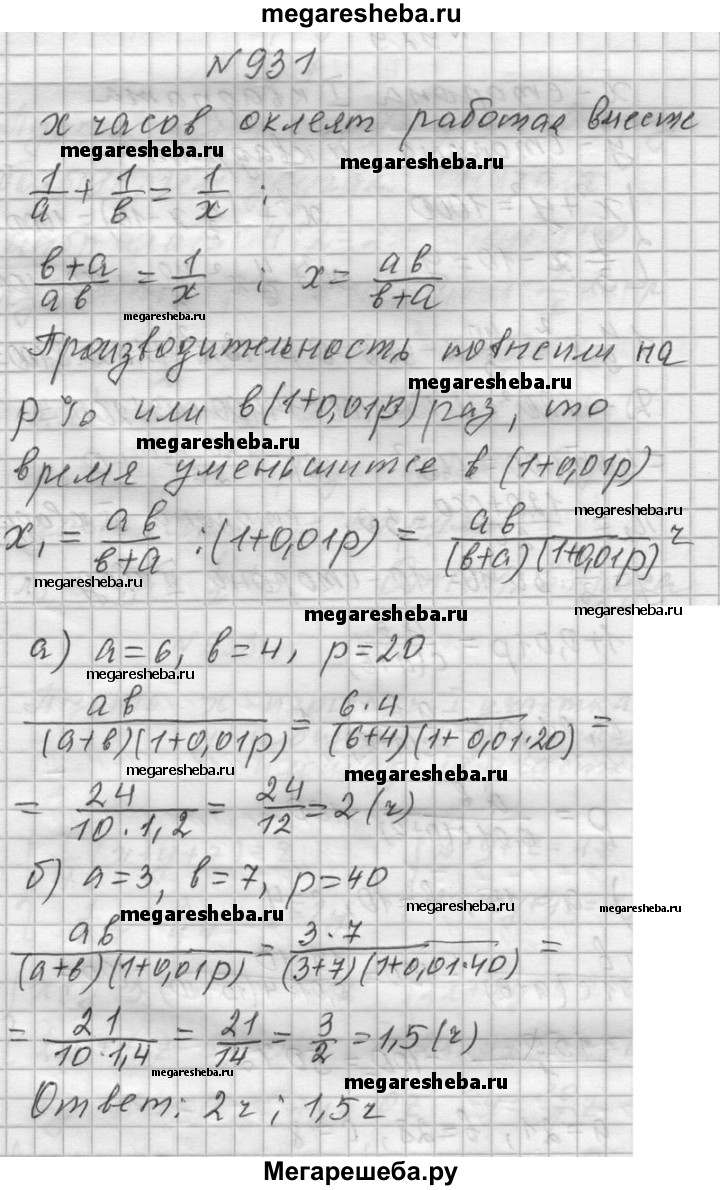 megaresheba.ru
№ 931
x часов оклеят работая вместе
megaresheba.ru
megaresheba.ru
1/a + 1/в = 1/x ;
(в+а)/(ав) = 1/x ; x = (ав)/(в+а)
megaresheba.ru
Производительность повысили на
megaresheba.ru
p % или в (1+0,01p) раз, то
megaresheba.ru
время уменьшится в (1+0,01p)
megaresheba.ru
x₁ = (ав)/(в+а) : (1+0,01p) = (ав)/((в+а)(1+0,01p)) ч
megaresheba.ru
megaresheba.ru
megaresheba.ru
а) a=6, в=4, p=20
megaresheba.ru
(ав)/((а+в)(1+0,01p)) = (6·4)/((6+4)(1+0,01·20)) =
megaresheba.ru
megaresheba.ru
= 24/(10·1,2) = 24/12 = 2 (ч)
б) a=3, в=7, p=40
megaresheba.ru
megaresheba.ru
megaresheba.ru
(ав)/((а+в)(1+0,01p)) = (3·7)/((3+7)(1+0,01·40)) =
= 21/(10·1,4) = 21/14 = 3/2 = 1,5 (ч)
megaresheba.ru
megaresheba.ru
Ответ: 2 ч ; 1,5 ч
Мегарешеба.ру